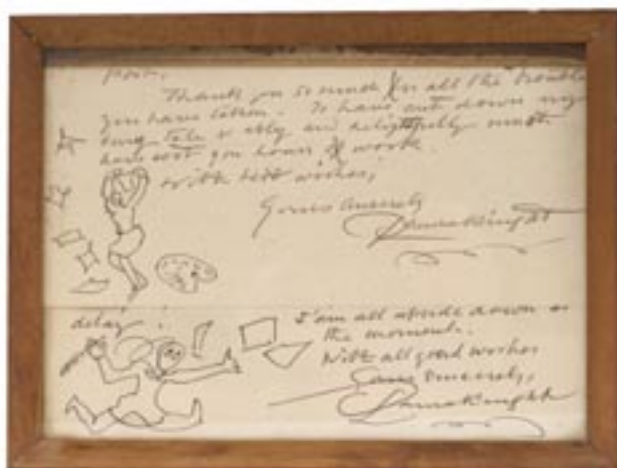 Thank you so much for all the trouble
you have taken. To have cut down my
long tale so ably and delightfully must
have cost you hours of work.
With best wishes,
Yours sincerely
Laura Knight
delay !
I am all upside down at
the moment.
With all good wishes
Yours sincerely,
Laura Knight